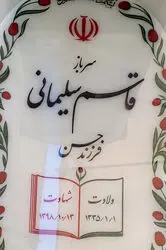 سرباز
قاسم سلیمانی
فرزند حسن
ولادت
۱۳۳۵/۱/۱
شهادت
۱۳۹۸/۱۰/۱۳